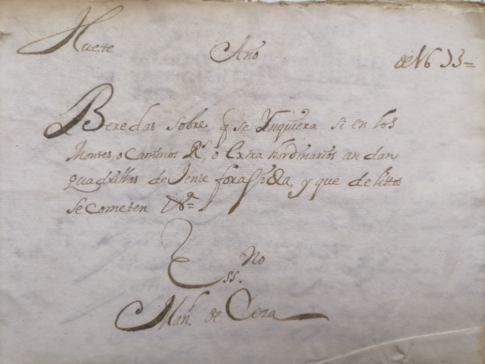 Huete Año de 1693=
Beredas sobre q se Ynquiera si en los
Montes, o Caminos Rs. o Extrahordinarios andan
quadrillas de Jente foraxida, y que delittos
se cometen
Ess.no
Man. de Cera